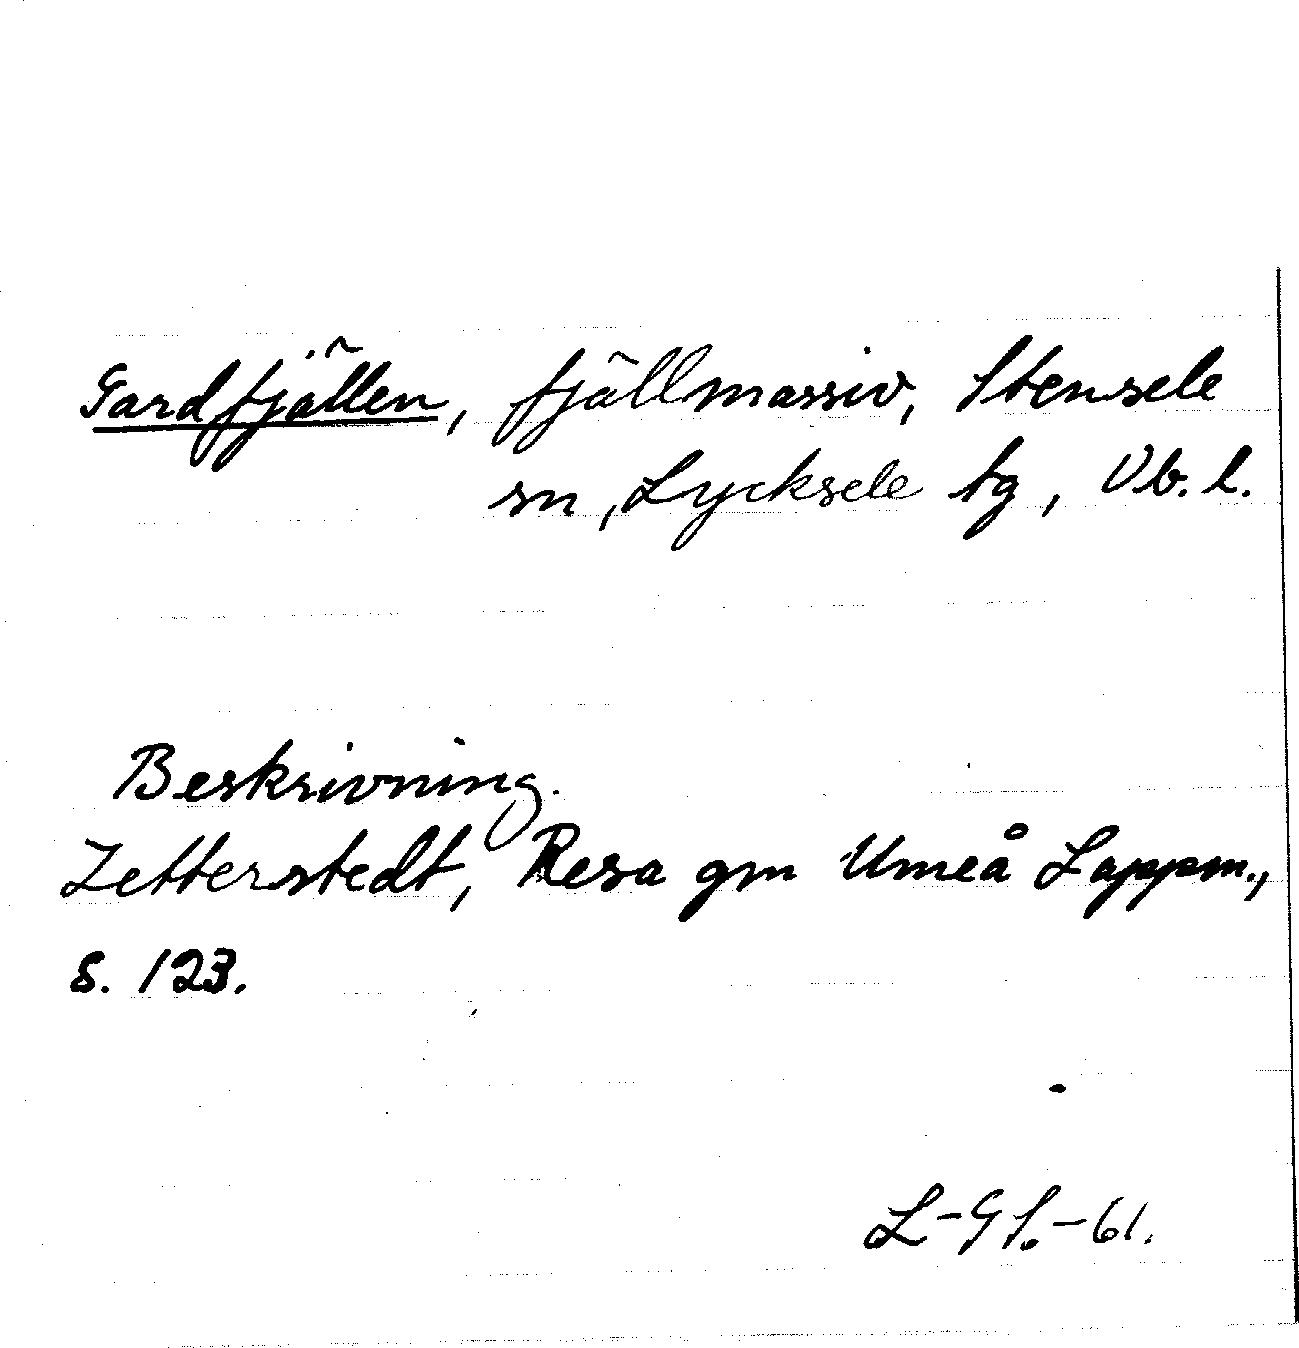 Gardfjällen, fjällmassiv, Stensele
sn, Lycksele tg, Vb. l.
Beskrivning.
Zetterstedt, Resa gm Umeå Lappm.,
s. 123.
L-G S.-61.